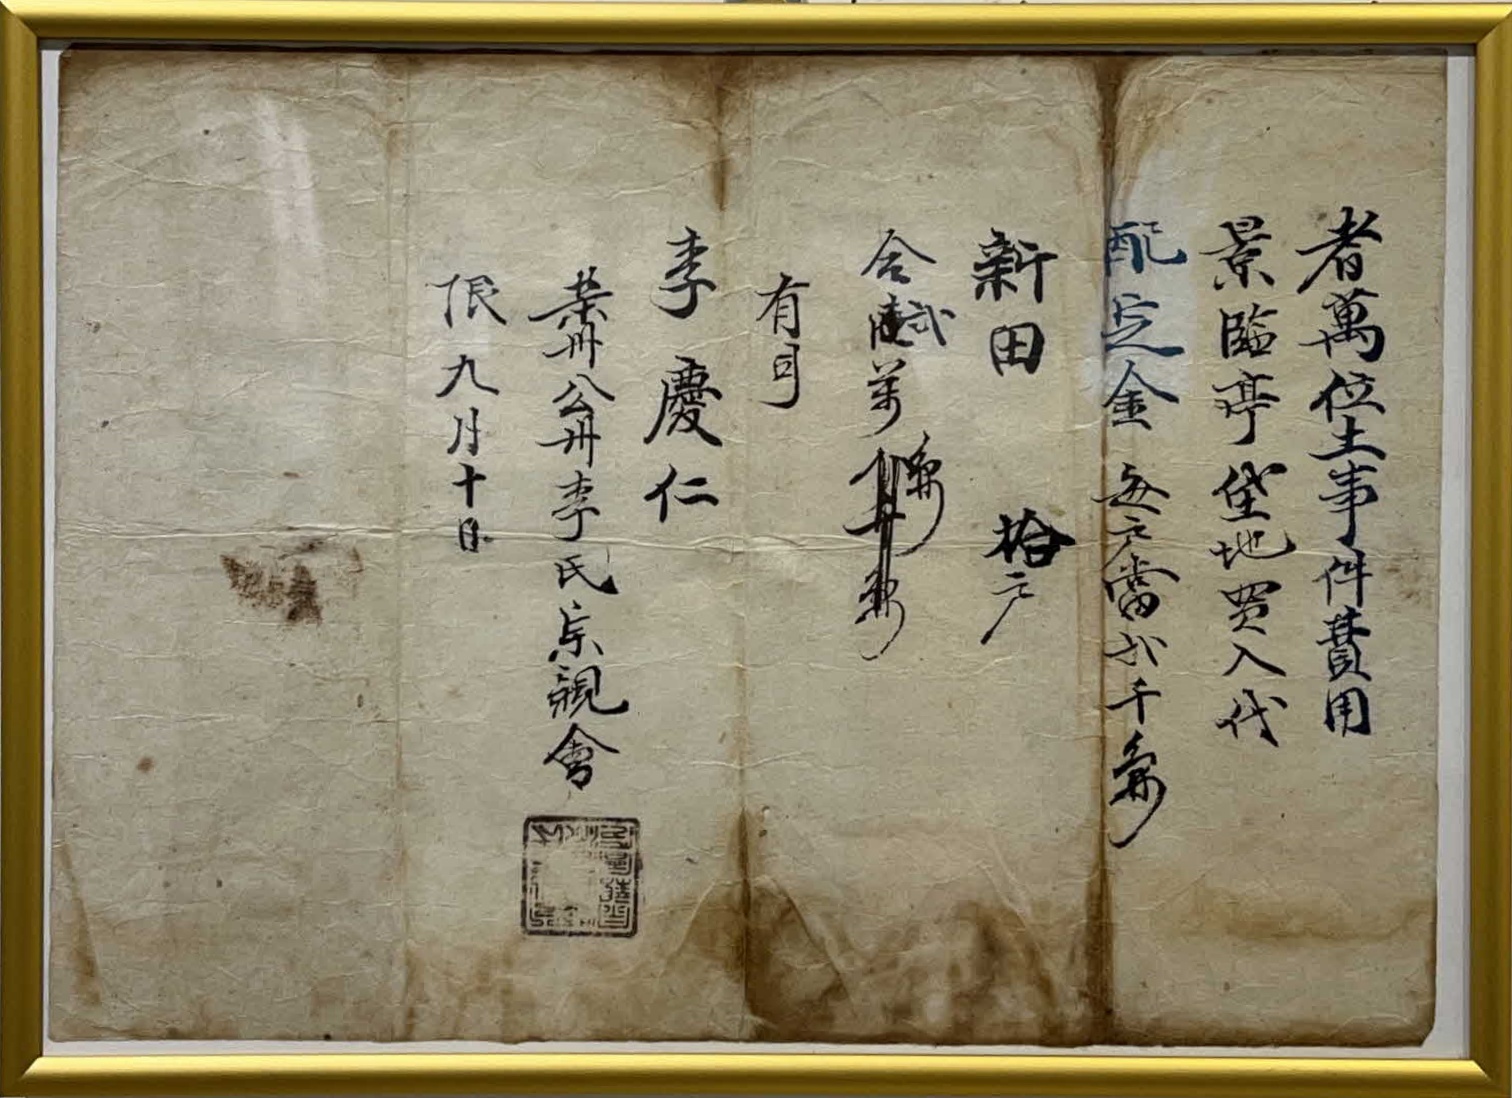 者萬位土事件費用
景臨亭垈地買入代
配定金 每戶當弍千圜
新田 拾戶
合弍萬圜
有司
李慶仁
葉卅公卅李氏宗親會
限九月十日